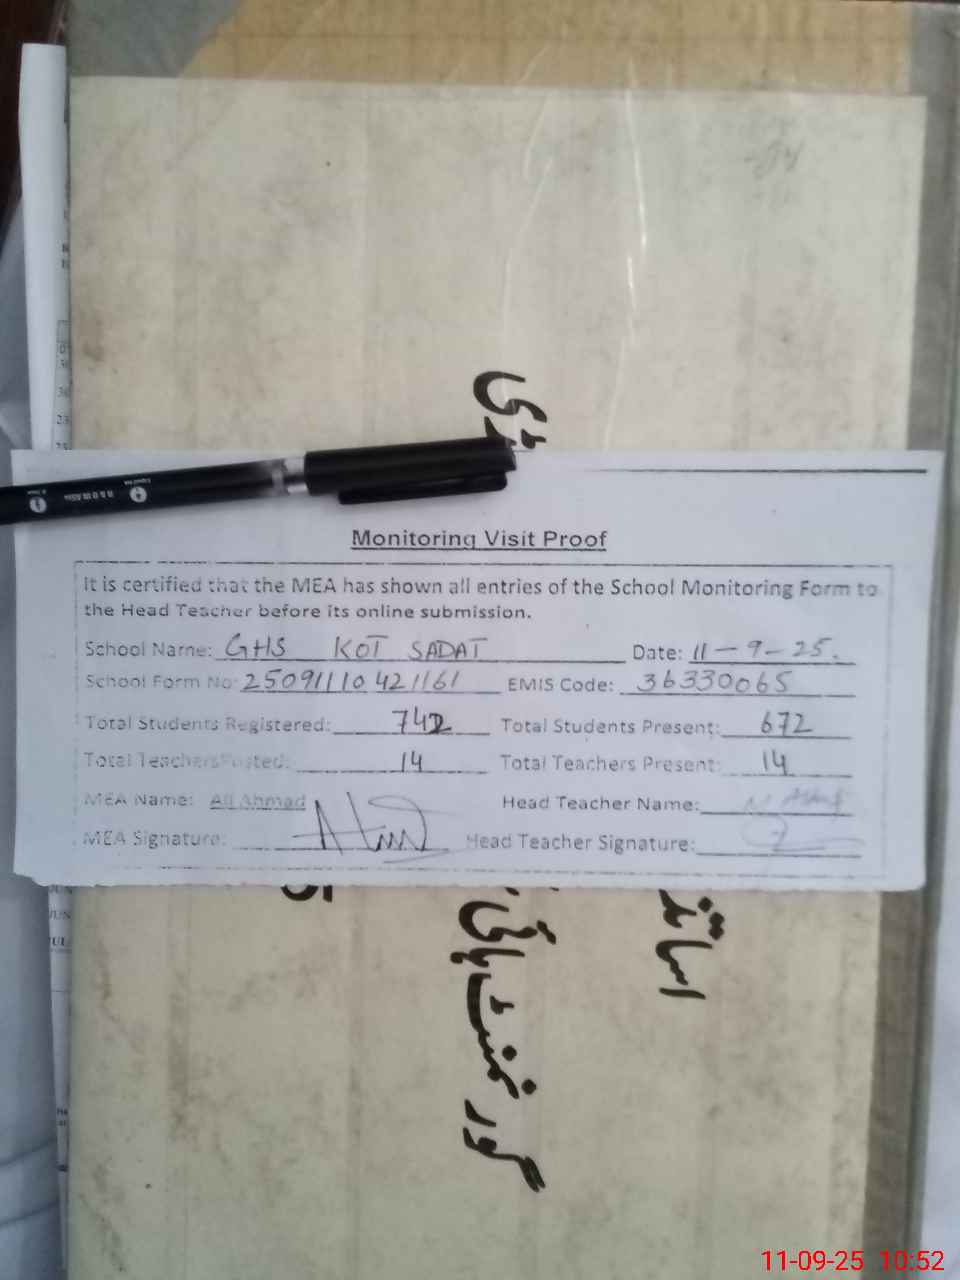 Monitoring Visit Proof
It is certified that the MEA has shown all entries of the School Monitoring Form to
the Head Teacher before its online submission.
School Name: GHS KOT SADAT Date: 11-9-25.
School Form No: 25091110421161 EMIS Code: 36330065
Total Students Registered: 742 Total Students Present: 672
Total Teachers Posted: 14 Total Teachers Present: 14
MEA Name: Ali Ahmad Head Teacher Name:
MEA Signature: Head Teacher Signature:
اساتذ
گورنمنٹ ہائی
11-09-25 10:52